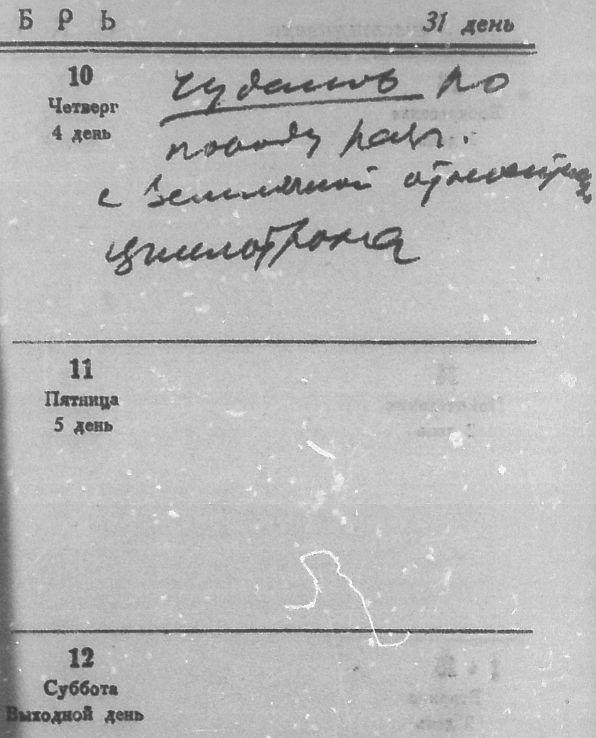 БРЬ 31 день
10
Четверг
4 день
Чудаков по
поводу разг.
с Земляной относительно
циклотрона
11
Пятница
5 день
12
Суббота
Выходной день